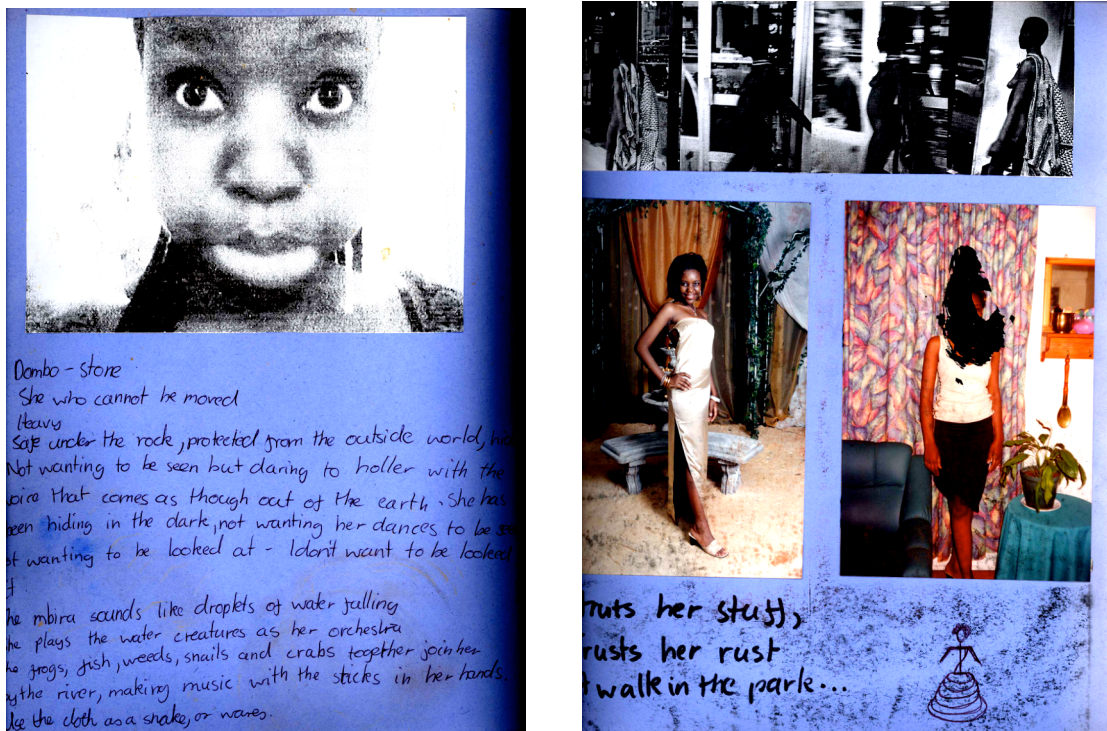 Dombo - stone
She who cannot be moved
Heavy
Safe under the rock, protected from the outside world,
Not wanting to be seen but daring to holler with the
that comes as though out of the earth. She has
een hiding in the dark, not wanting her dances to be
ot wanting to be looked at - I don't want to be looked
he mbira sounds like droplets of water falling
he plays the water creatures as her orchestra
he frogs, fish, weeds, snails and crabs together join her
by the river, making music with the sticks in her hands.
Use the cloth as a snake, or waves.
ruts her stuff,
rusts her rust
walk in the park...